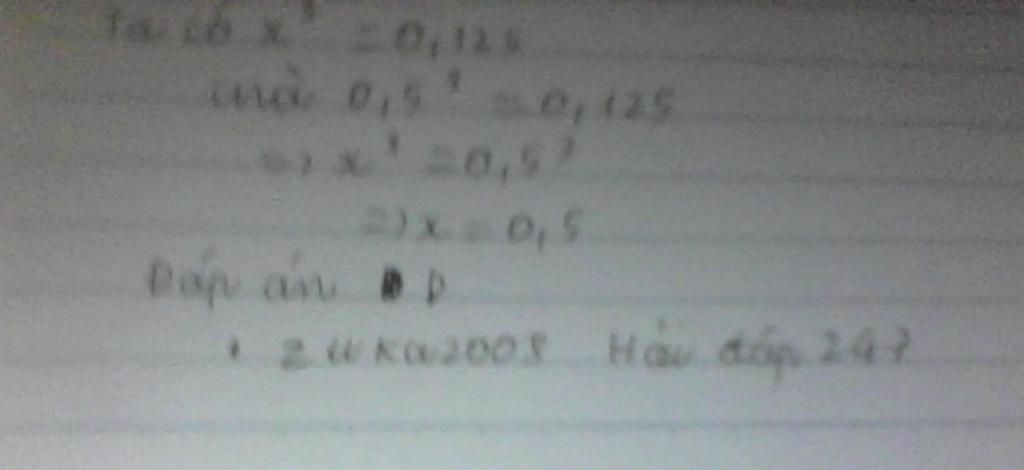 Ta có x³ = 0,125
mà 0,5³ = 0,125
=> x³ = 0,5³
=> x = 0,5
Đáp án D
Hỏi đáp 247